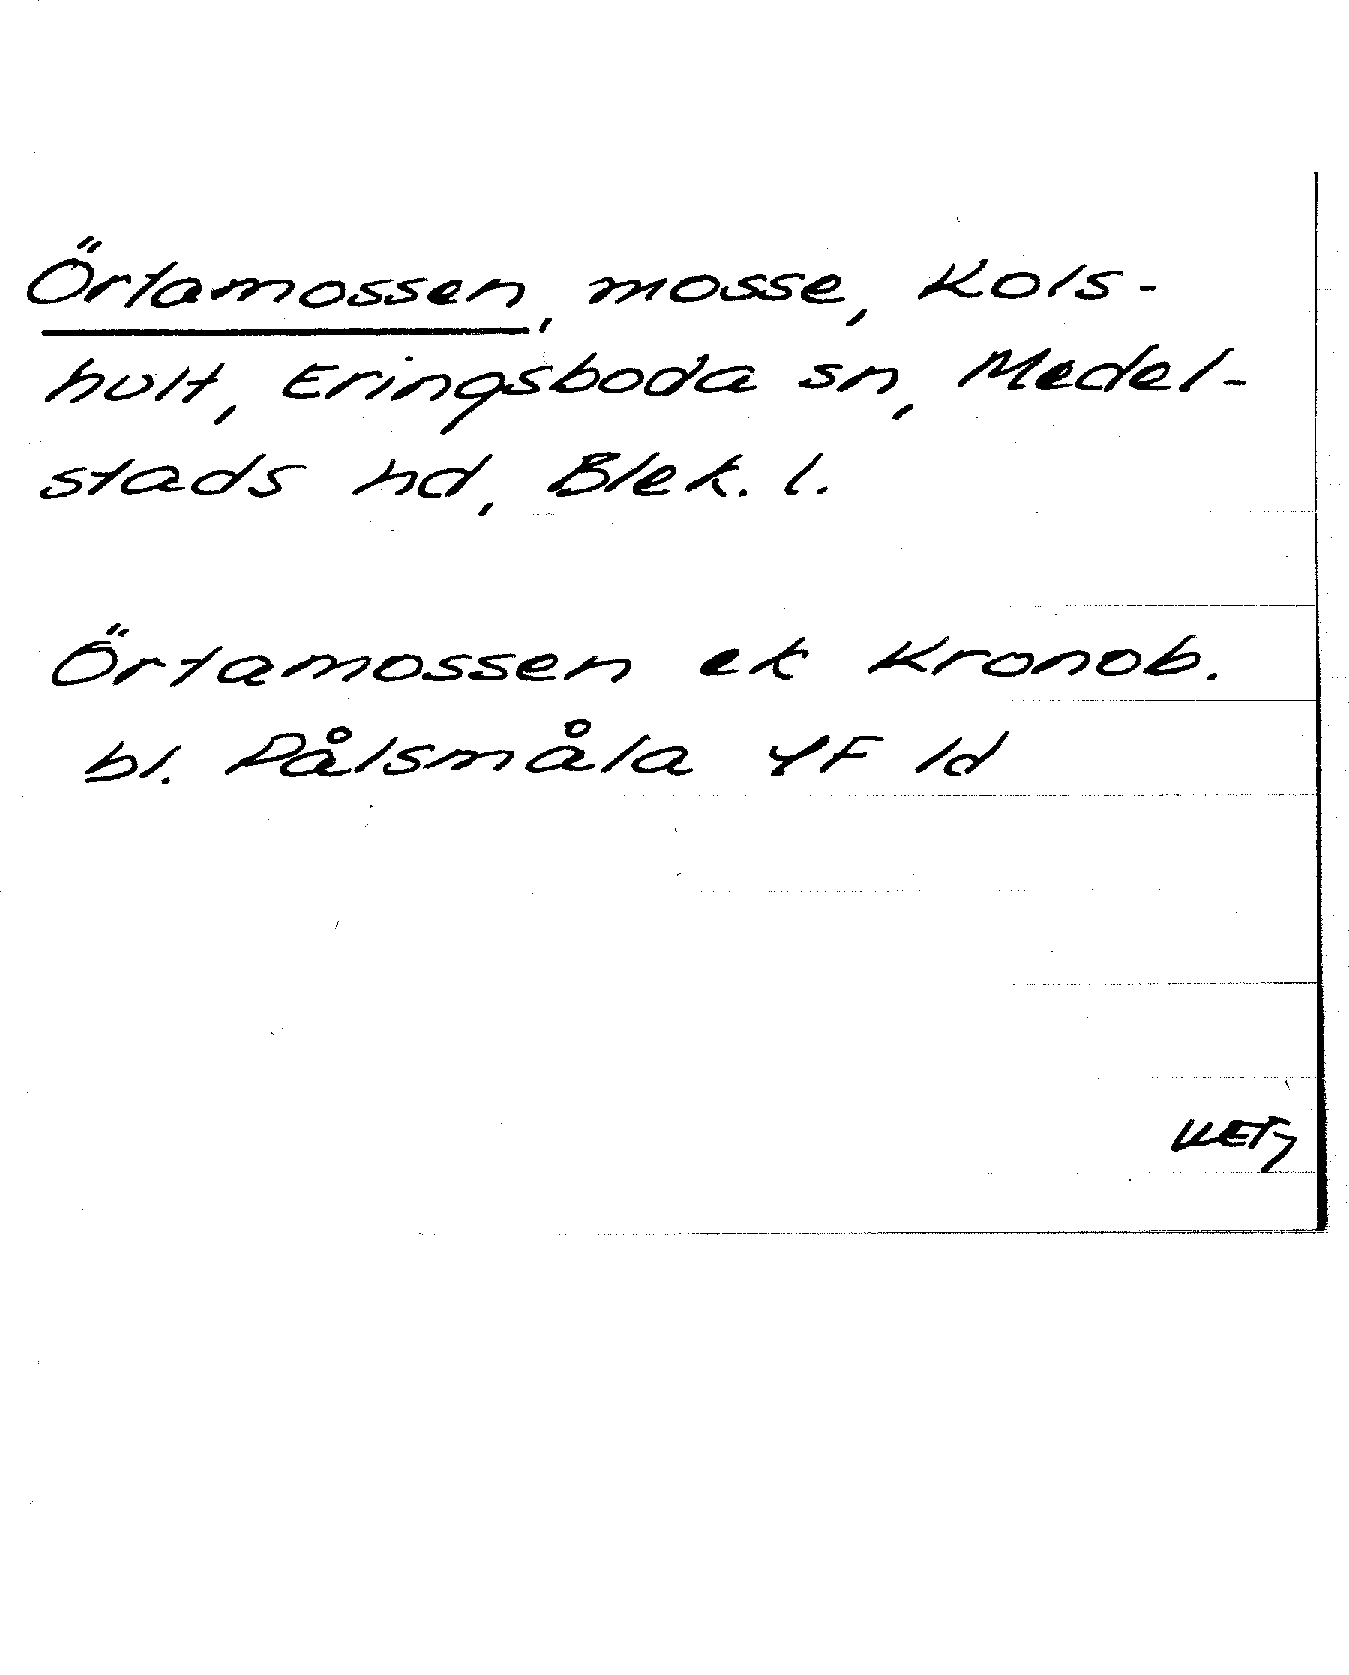 Örtamossen, mosse, Kols-
hult, Eringsboda sn, Medel-
stads hd, Blek. l.
Örtamossen ek Kronob.
bl. Pålsmåla 4F 1d